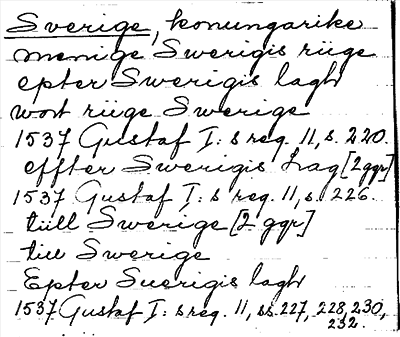 Sverige, konungarike
menige Swerigis riige
epter Swerigis lagh
wort riige Swerige
1537 Gustaf I: s reg. 11, s. 220.
effter Swerigis Lag [2 ggr]
1537 Gustaf I: s reg. 11, s. 226.
tiill Swerige [2 ggr]
till Swerige
Epter Suerigis lagh
1537 Gustaf I: s reg. 11, ss. 227, 228, 230,
232.